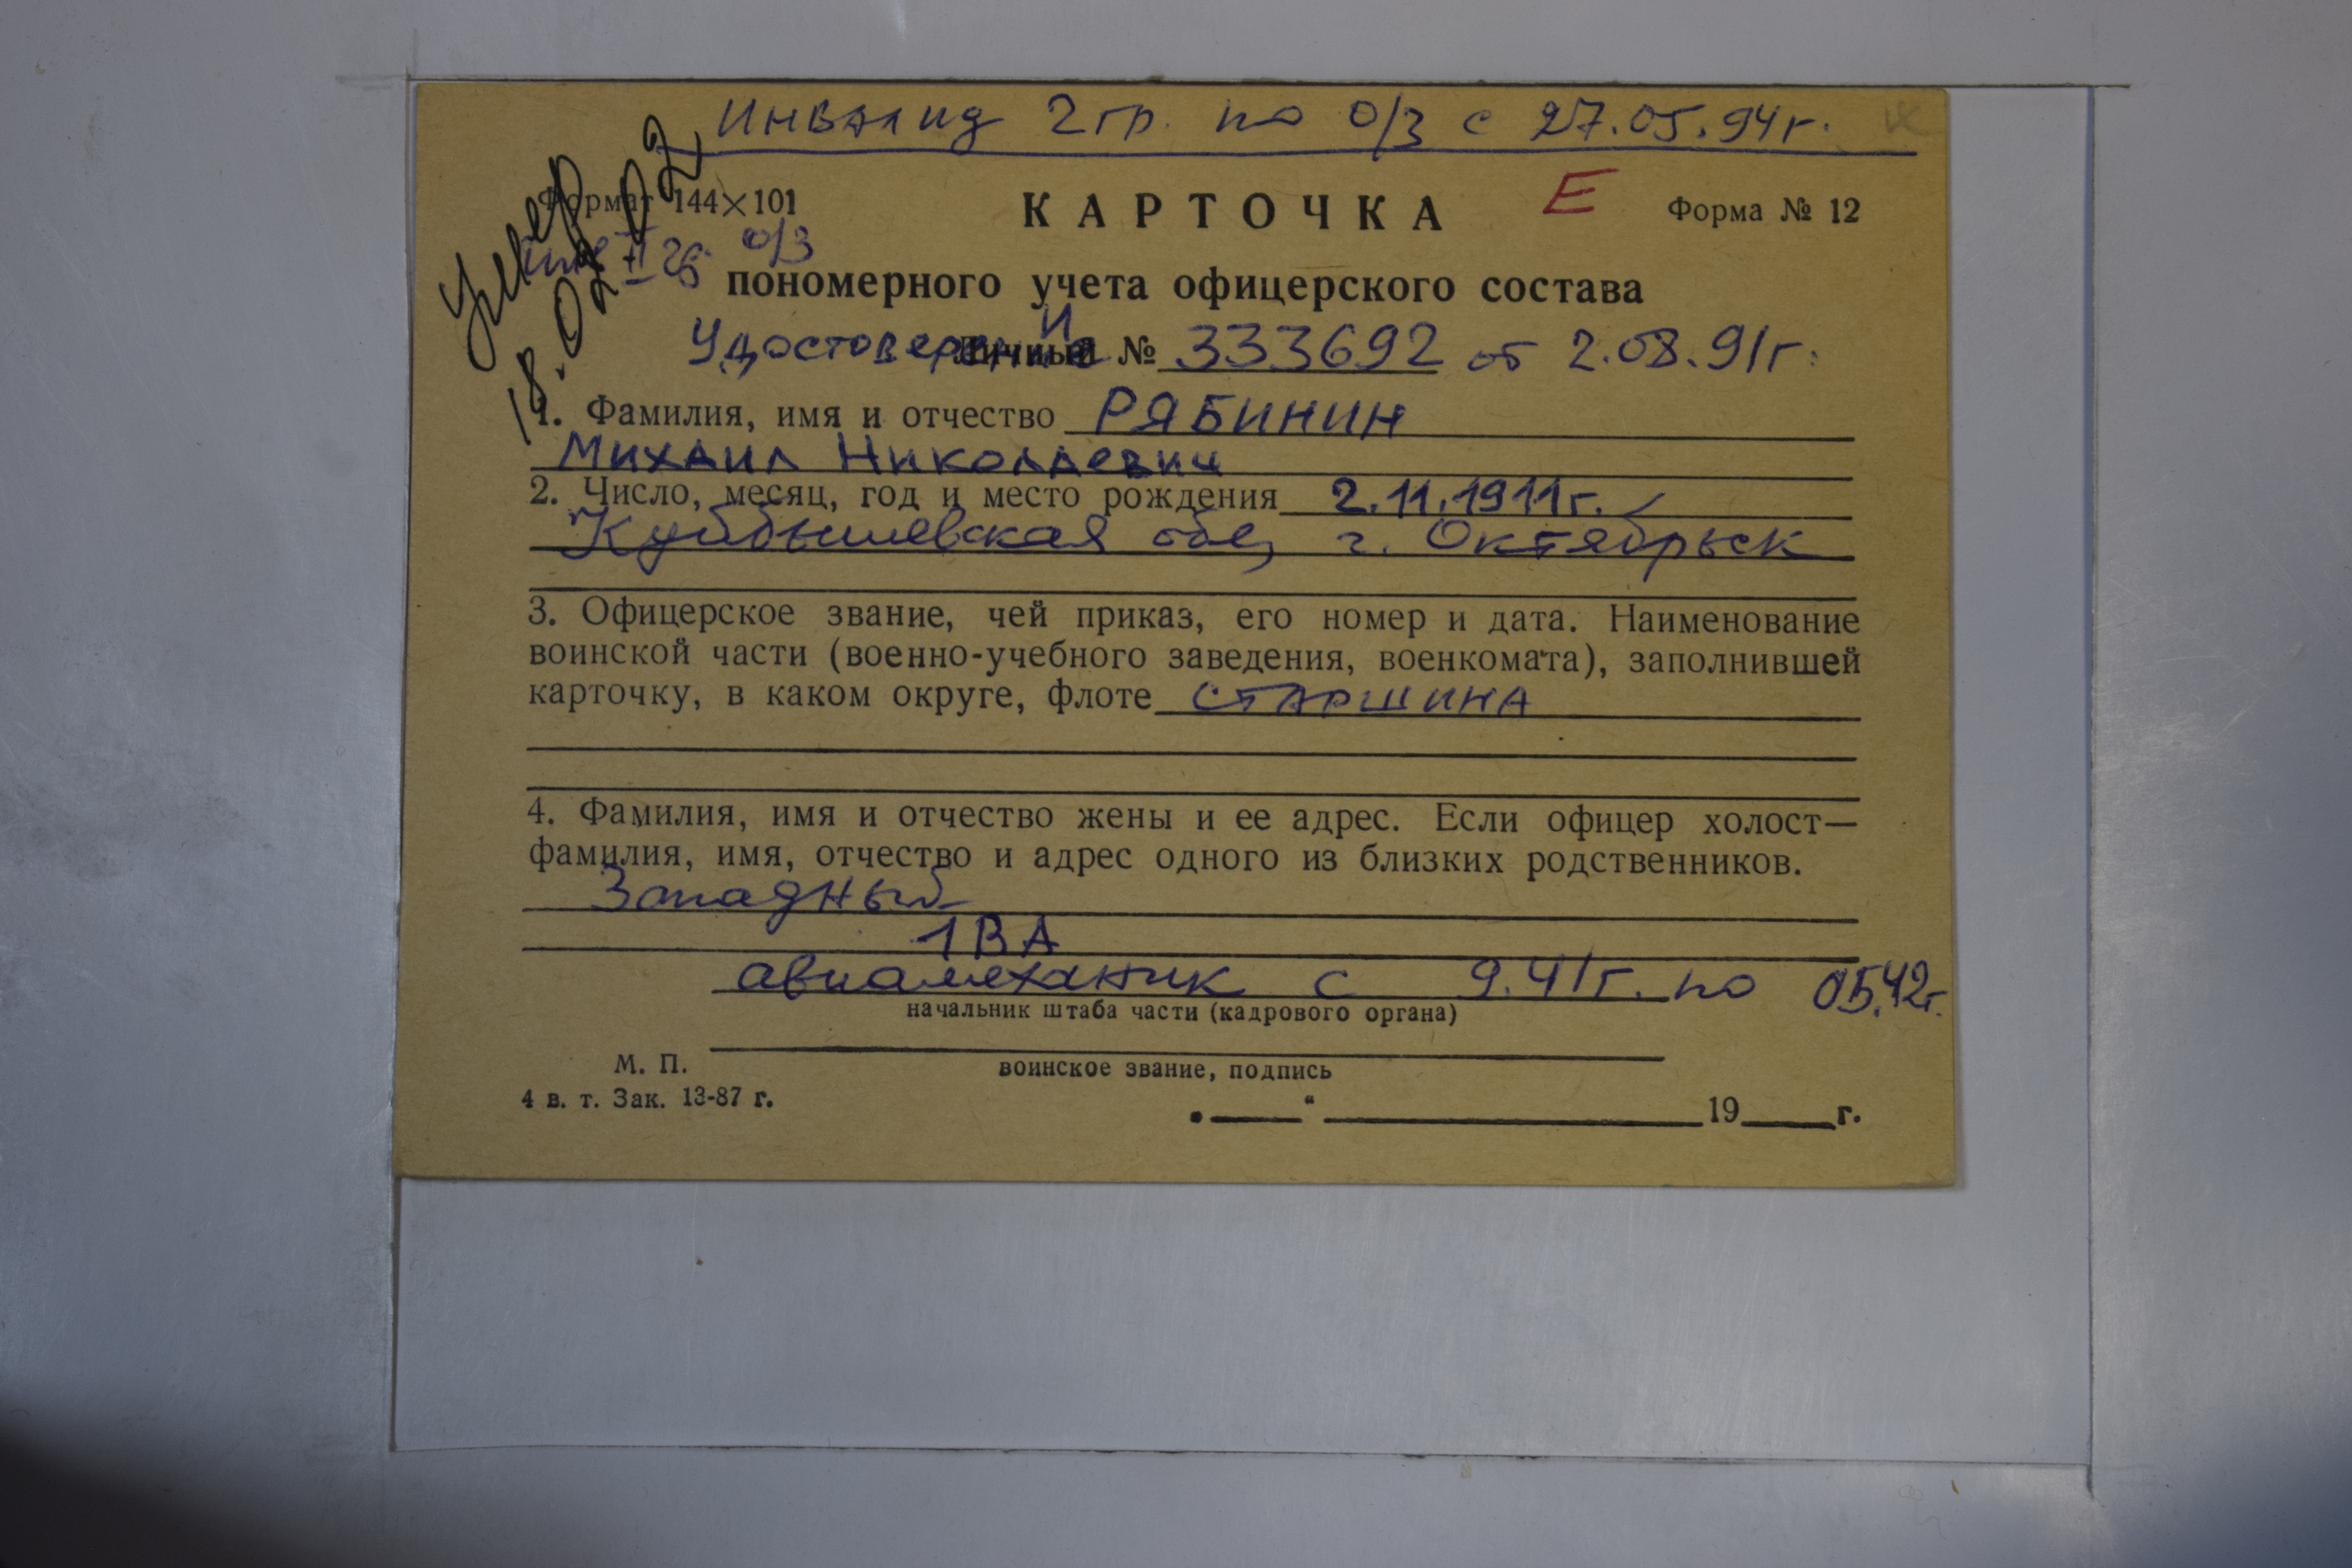 Инвалид 2 гр. по о/з с 27.05.94г.
Умер
18.02.02
Формат 144×101
КАРТОЧКА
Е
Форма № 12
II о/з
пономерного учета офицерского состава
Удостоверение № 333692 от 2.08.91г.
1. Фамилия, имя и отчество РЯБИНИН
Михаил Николаевич
2. Число, месяц, год и место рождения 2.11.1911г.
Куйбышевская обл, г. Октябрьск
3. Офицерское звание, чей приказ, его номер и дата. Наименование
воинской части (военно-учебного заведения, военкомата), заполнившей
карточку, в каком округе, флоте старшина
4. Фамилия, имя и отчество жены и ее адрес. Если офицер холост—
фамилия, имя, отчество и адрес одного из близких родственников.
Западный
1 ВА
авиамеханик с 9.41г. по 05.42г.
начальник штаба части (кадрового органа)
М. П.
воинское звание, подпись
4 в. т. Зак. 13-87 г.
„____“ ____________ 19____г.